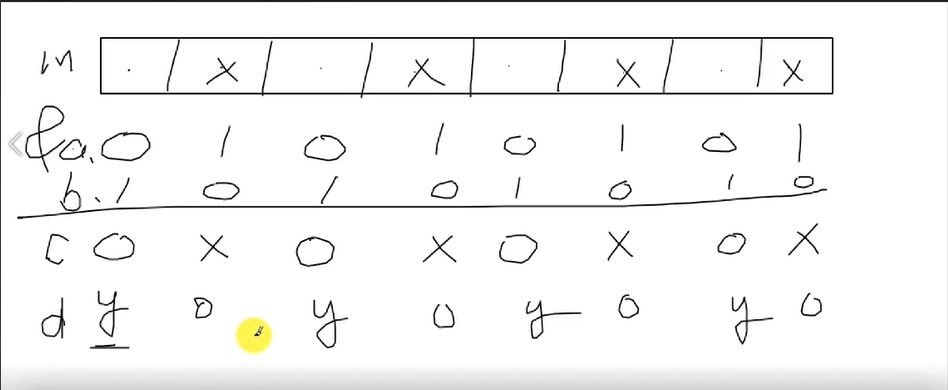 m . x . x . x . x
a. 0 1 0 1 0 1 0 1
b. 1 0 1 0 1 0 1 0
c 0 x 0 x 0 x 0 x
d y 0 y 0 y 0 y 0